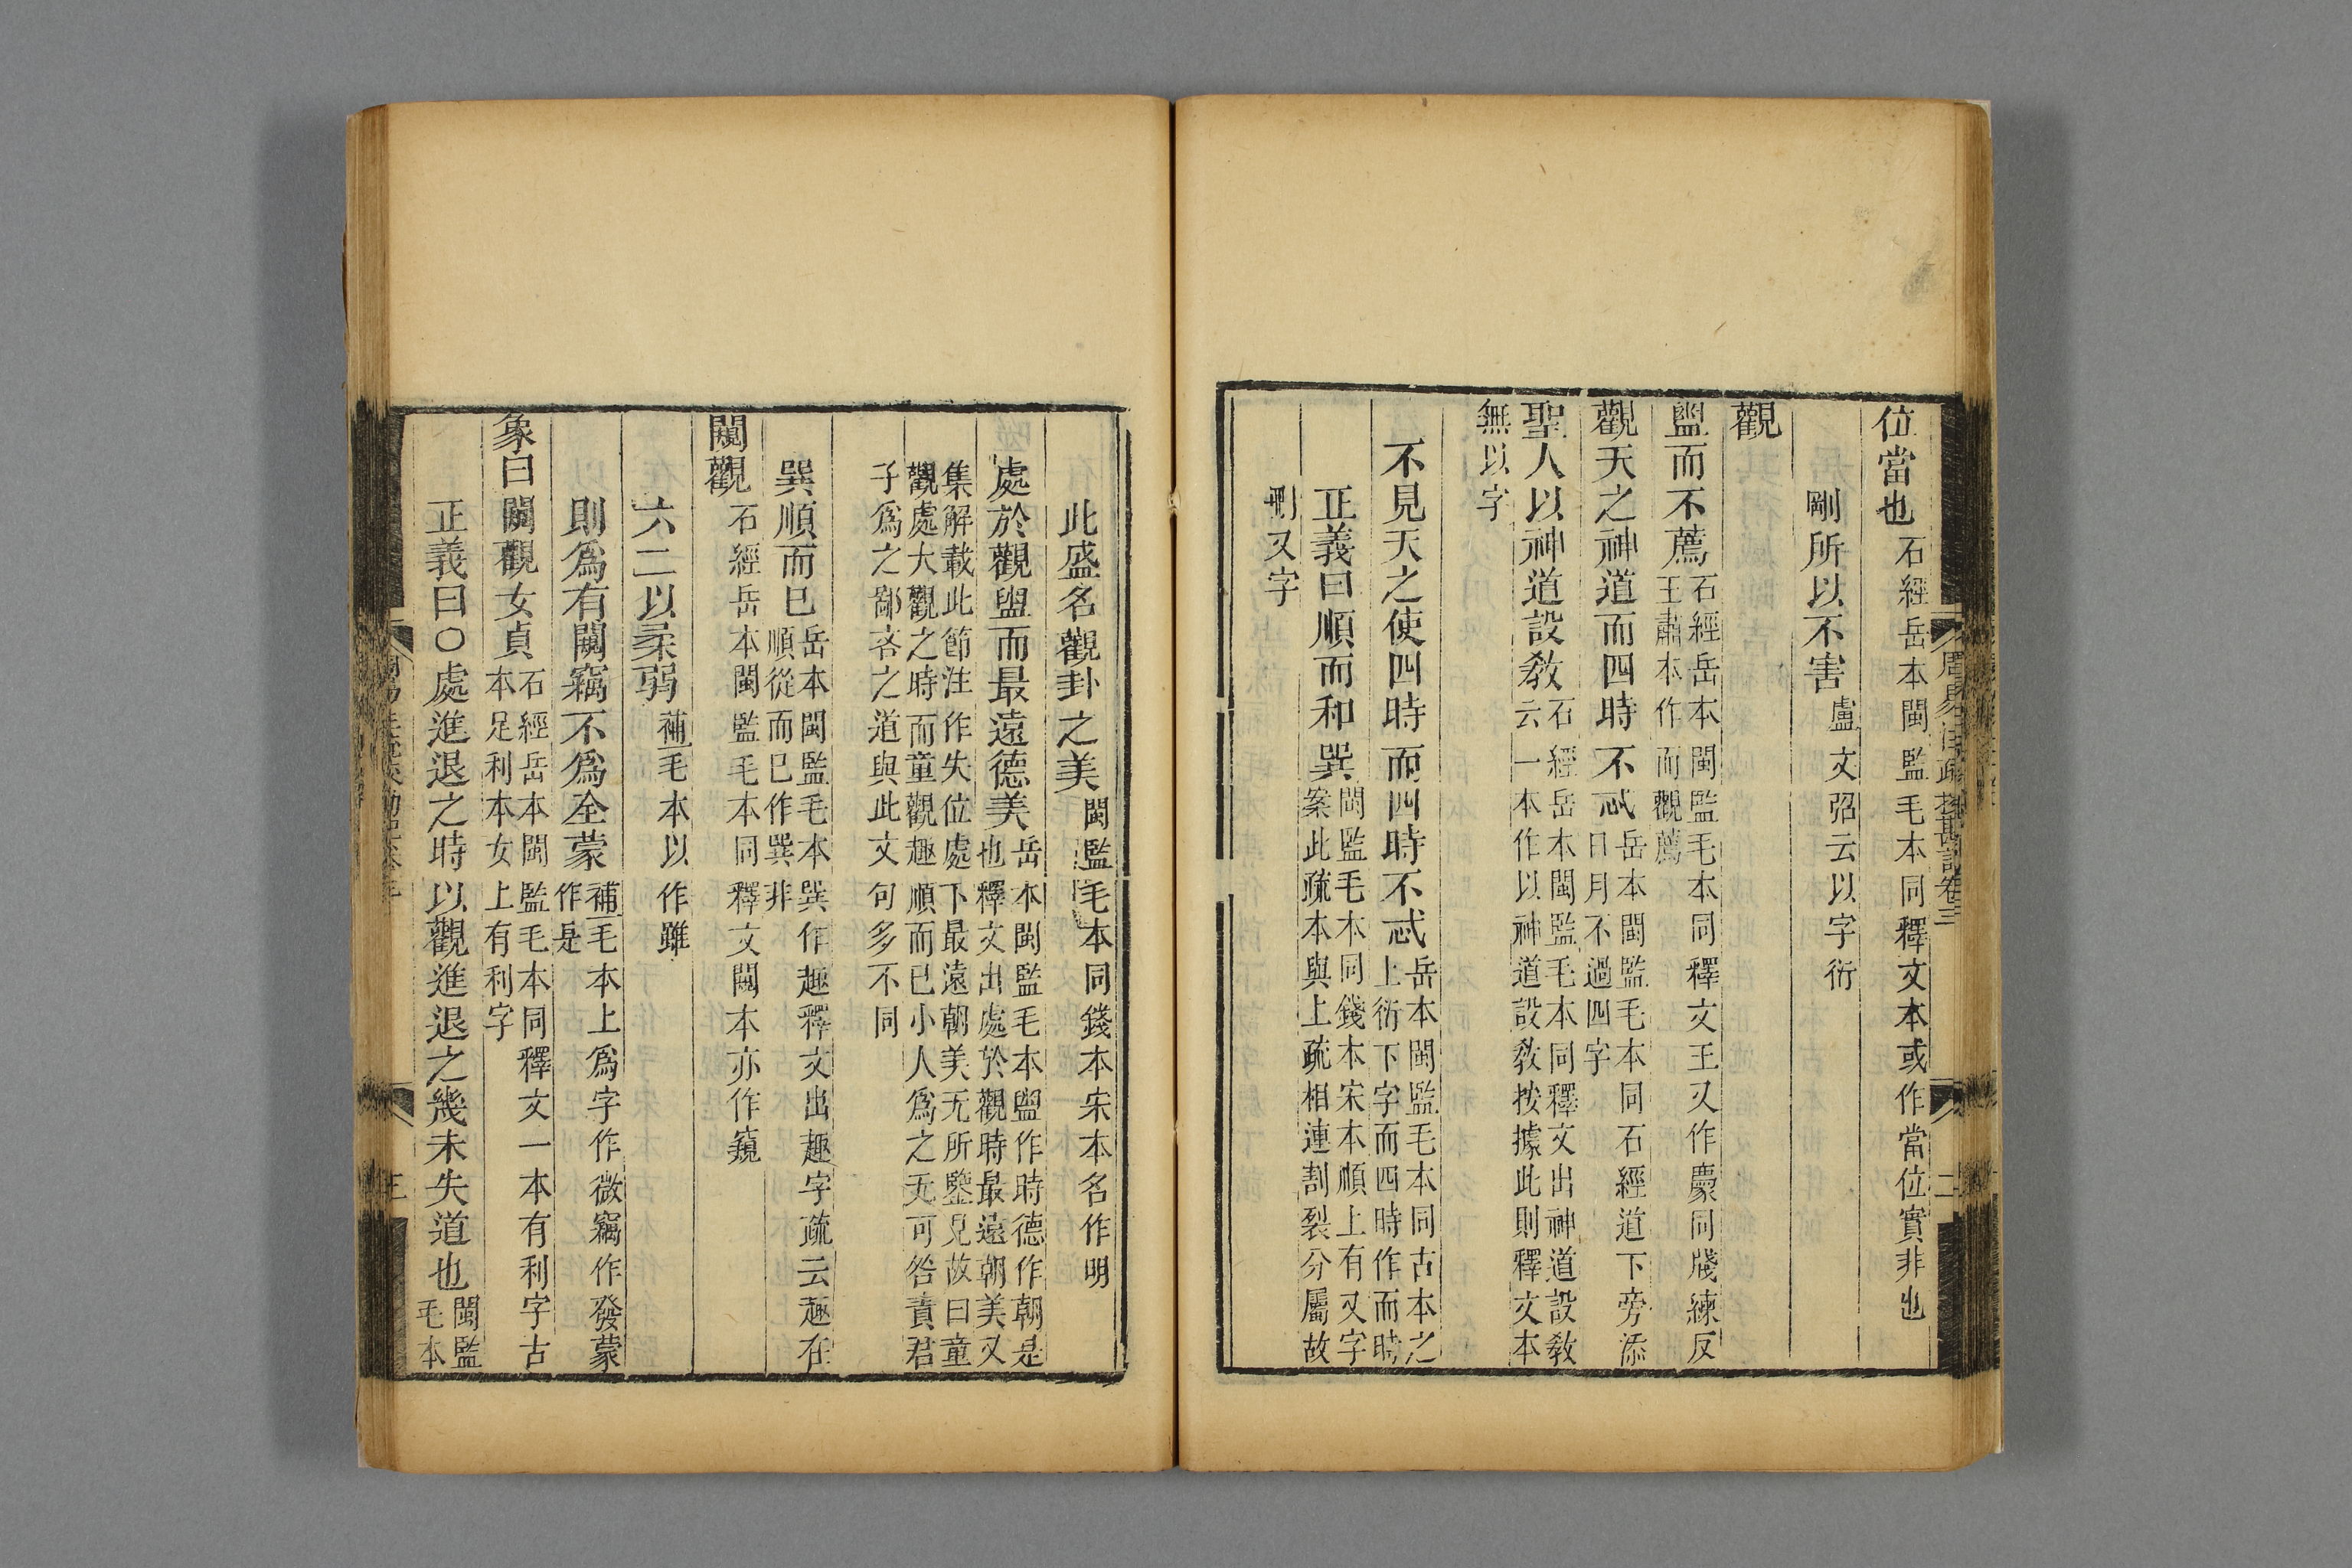 周易注疏校勘記卷三
二
位當也石經岳本閩監毛本同釋文本或作當位實非也
剛所以不害盧文弨云以字衍
觀
盥而不薦石經岳本閩監毛本同釋文王又作𢊁同牋練反
王肅本作而觀薦
觀天之神道而四時不忒岳本閩監毛本同石經道下旁添
日月不過四字
聖人以神道設教石經岳本閩監毛本同釋文出神道設教
云一本作以神道設教按據此則釋文本
無以字
不見天之使四時而四時不忒岳本閩監毛本同古本之
上衍下字而四時作而時
正義曰順而和巽閩監毛本同錢本宋本順上有又字
案此疏本與上疏相連割裂分屬故
刪又字
此盛名觀卦之美閩監毛本同錢本宋本名作明
處於觀盥而最遠德美岳本閩監毛本盥作時德作朝是
也釋文出處於觀時最遠朝美又
集解載此節注作失位處下最遠朝美无所鑒見故曰童
觀處大觀之時而童觀趣順而已小人爲之无可咎責君
子爲之鄙吝之道與此文句多不同
巽順而已岳本閩監毛本巽作趣釋文出趣字疏云趣在
順從而已作巽非
闚觀石經岳本閩監毛本同釋文闚本亦作窺
六二以柔弱補毛本以作雖
則爲有闚竊不爲全蒙補毛本上爲字作微竊作發蒙
作是
象曰闚觀女貞石經岳本閩監毛本同釋文一本有利字古
本足利本女上有利字
正義曰〇處進退之時以觀進退之幾未失道也閩監
毛本
三